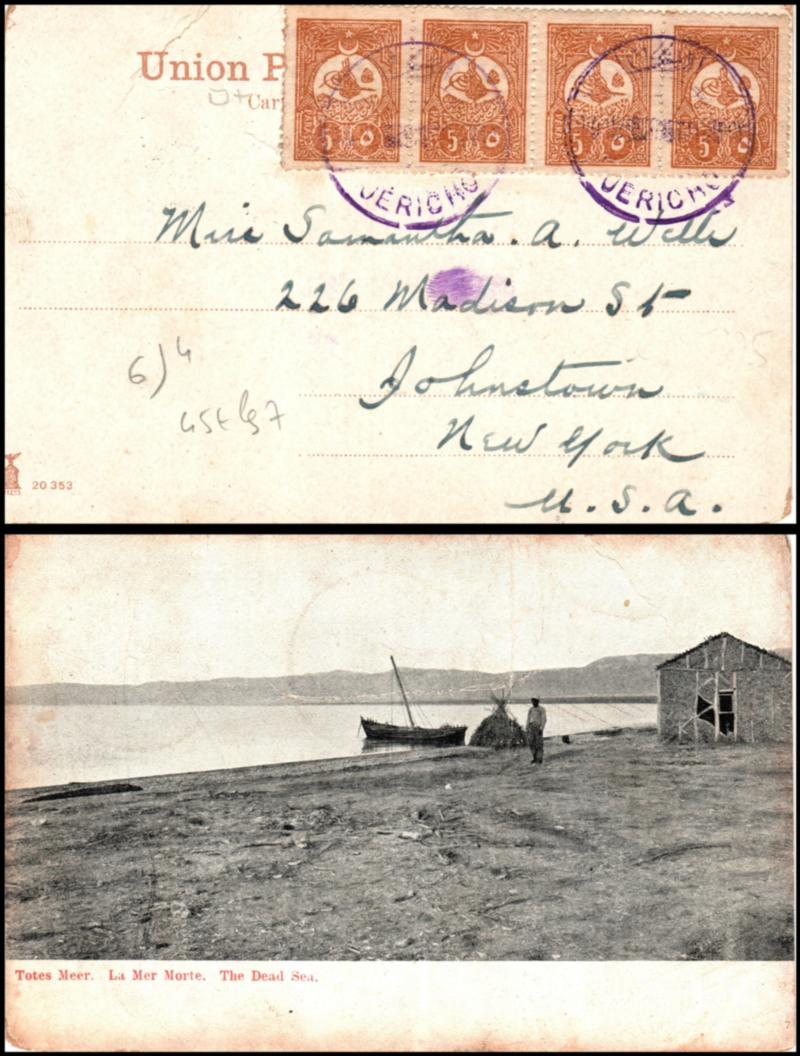 Union P
Car
5 ٥ 5 ٥ 5 ٥ 5 ٥
JERICHO JERICHO
Miss Samantha. A. Wells
226 Madison St
Johnstown
New York
U. S. A.
20 353
Totes Meer. La Mer Morte. The Dead Sea.